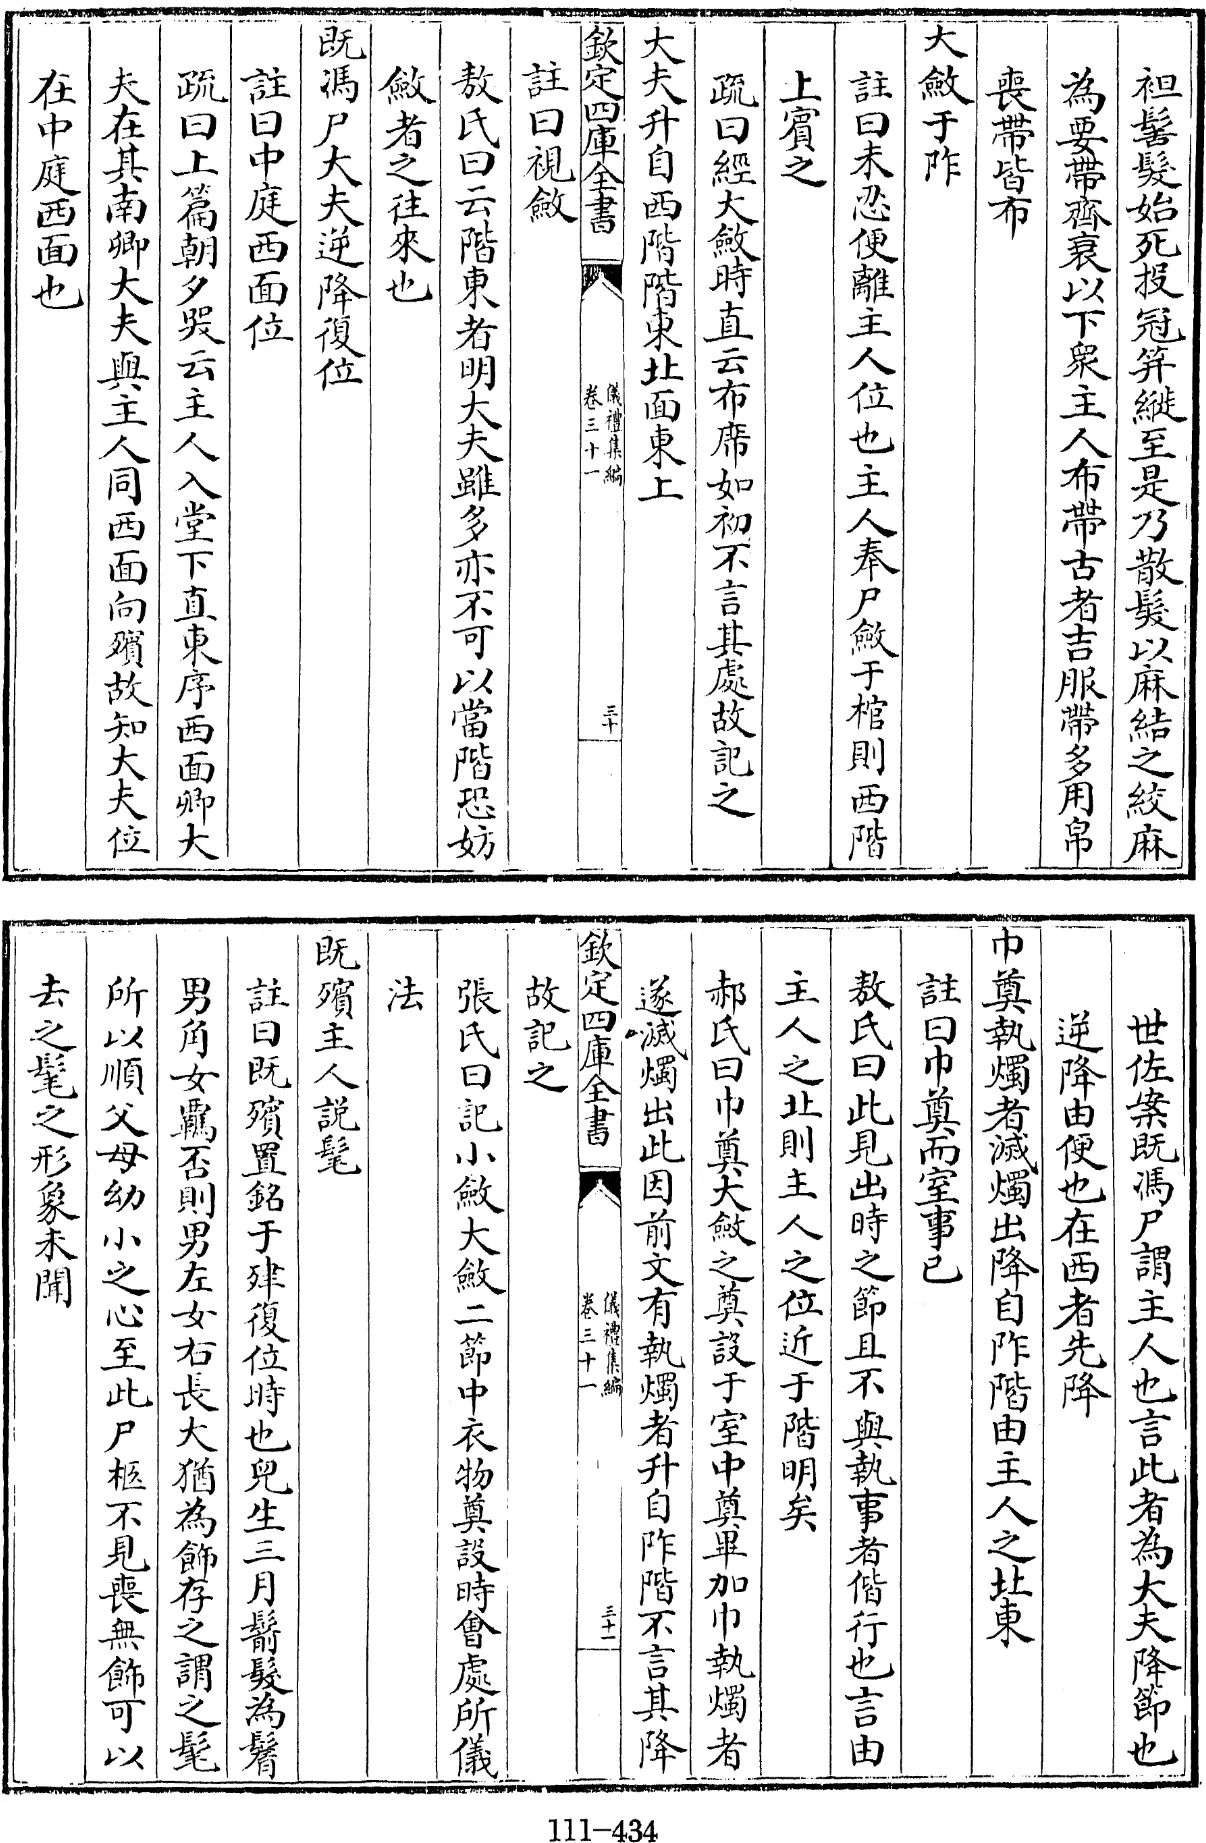 袒髺髮始死投冠笄縰至是乃散髮以麻結之絞麻
為要帶齊衰以下衆主人布帶古者吉服帶多用帛
喪帶皆布
大斂于阼
註曰未忍便離主人位也主人奉尸斂于棺則西階
上賓之
疏曰經大斂時直云布席如初不言其處故記之
大夫升自西階階東北面東上
欽定四庫全書
儀禮集編
卷三十一
三十
註曰視斂
敖氏曰云階東者明大夫雖多亦不可以當階恐妨
斂者之往來也
既馮尸大夫逆降復位
註曰中庭西面位
疏曰上篇朝夕哭云主人入堂下直東序西面卿大
夫在其南卿大夫與主人同西面向殯故知大夫位
在中庭西面也
世佐案既馮尸謂主人也言此者為大夫降節也
逆降由便也在西者先降
巾奠執燭者滅燭出降自阼階由主人之北東
註曰巾奠而室事已
敖氏曰此見出時之節且不與執事者偕行也言由
主人之北則主人之位近于階明矣
郝氏曰巾奠大斂之奠設于室中奠畢加巾執燭者
遂滅燭出此因前文有執燭者升自阼階不言其降
欽定四庫全書
儀禮集編
卷三十一
三十一
故記之
張氏曰記小斂大斂二節中衣物奠設時會處所儀
法
既殯主人說髦
註曰既殯置銘于肂復位時也兒生三月鬋髮為鬌
男角女羈否則男左女右長大猶為飾存之謂之髦
所以順父母幼小之心至此尸柩不見喪無飾可以
去之髦之形象未聞
111-434